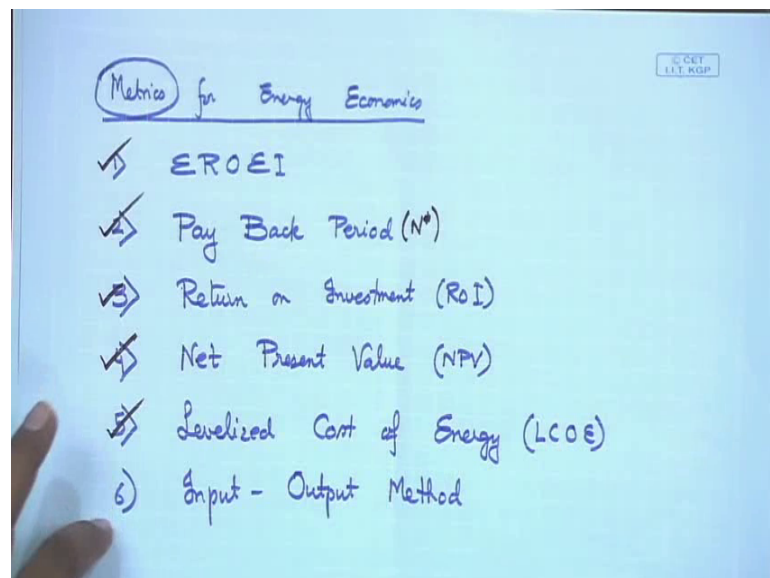 Metrics for Energy Economics
© CET
I.I.T. KGP
1) EROEI
2) Pay Back Period (N*)
3) Return on Investment (RoI)
4) Net Present Value (NPV)
5) Levelized Cost of Energy (LCOE)
6) Input - Output Method